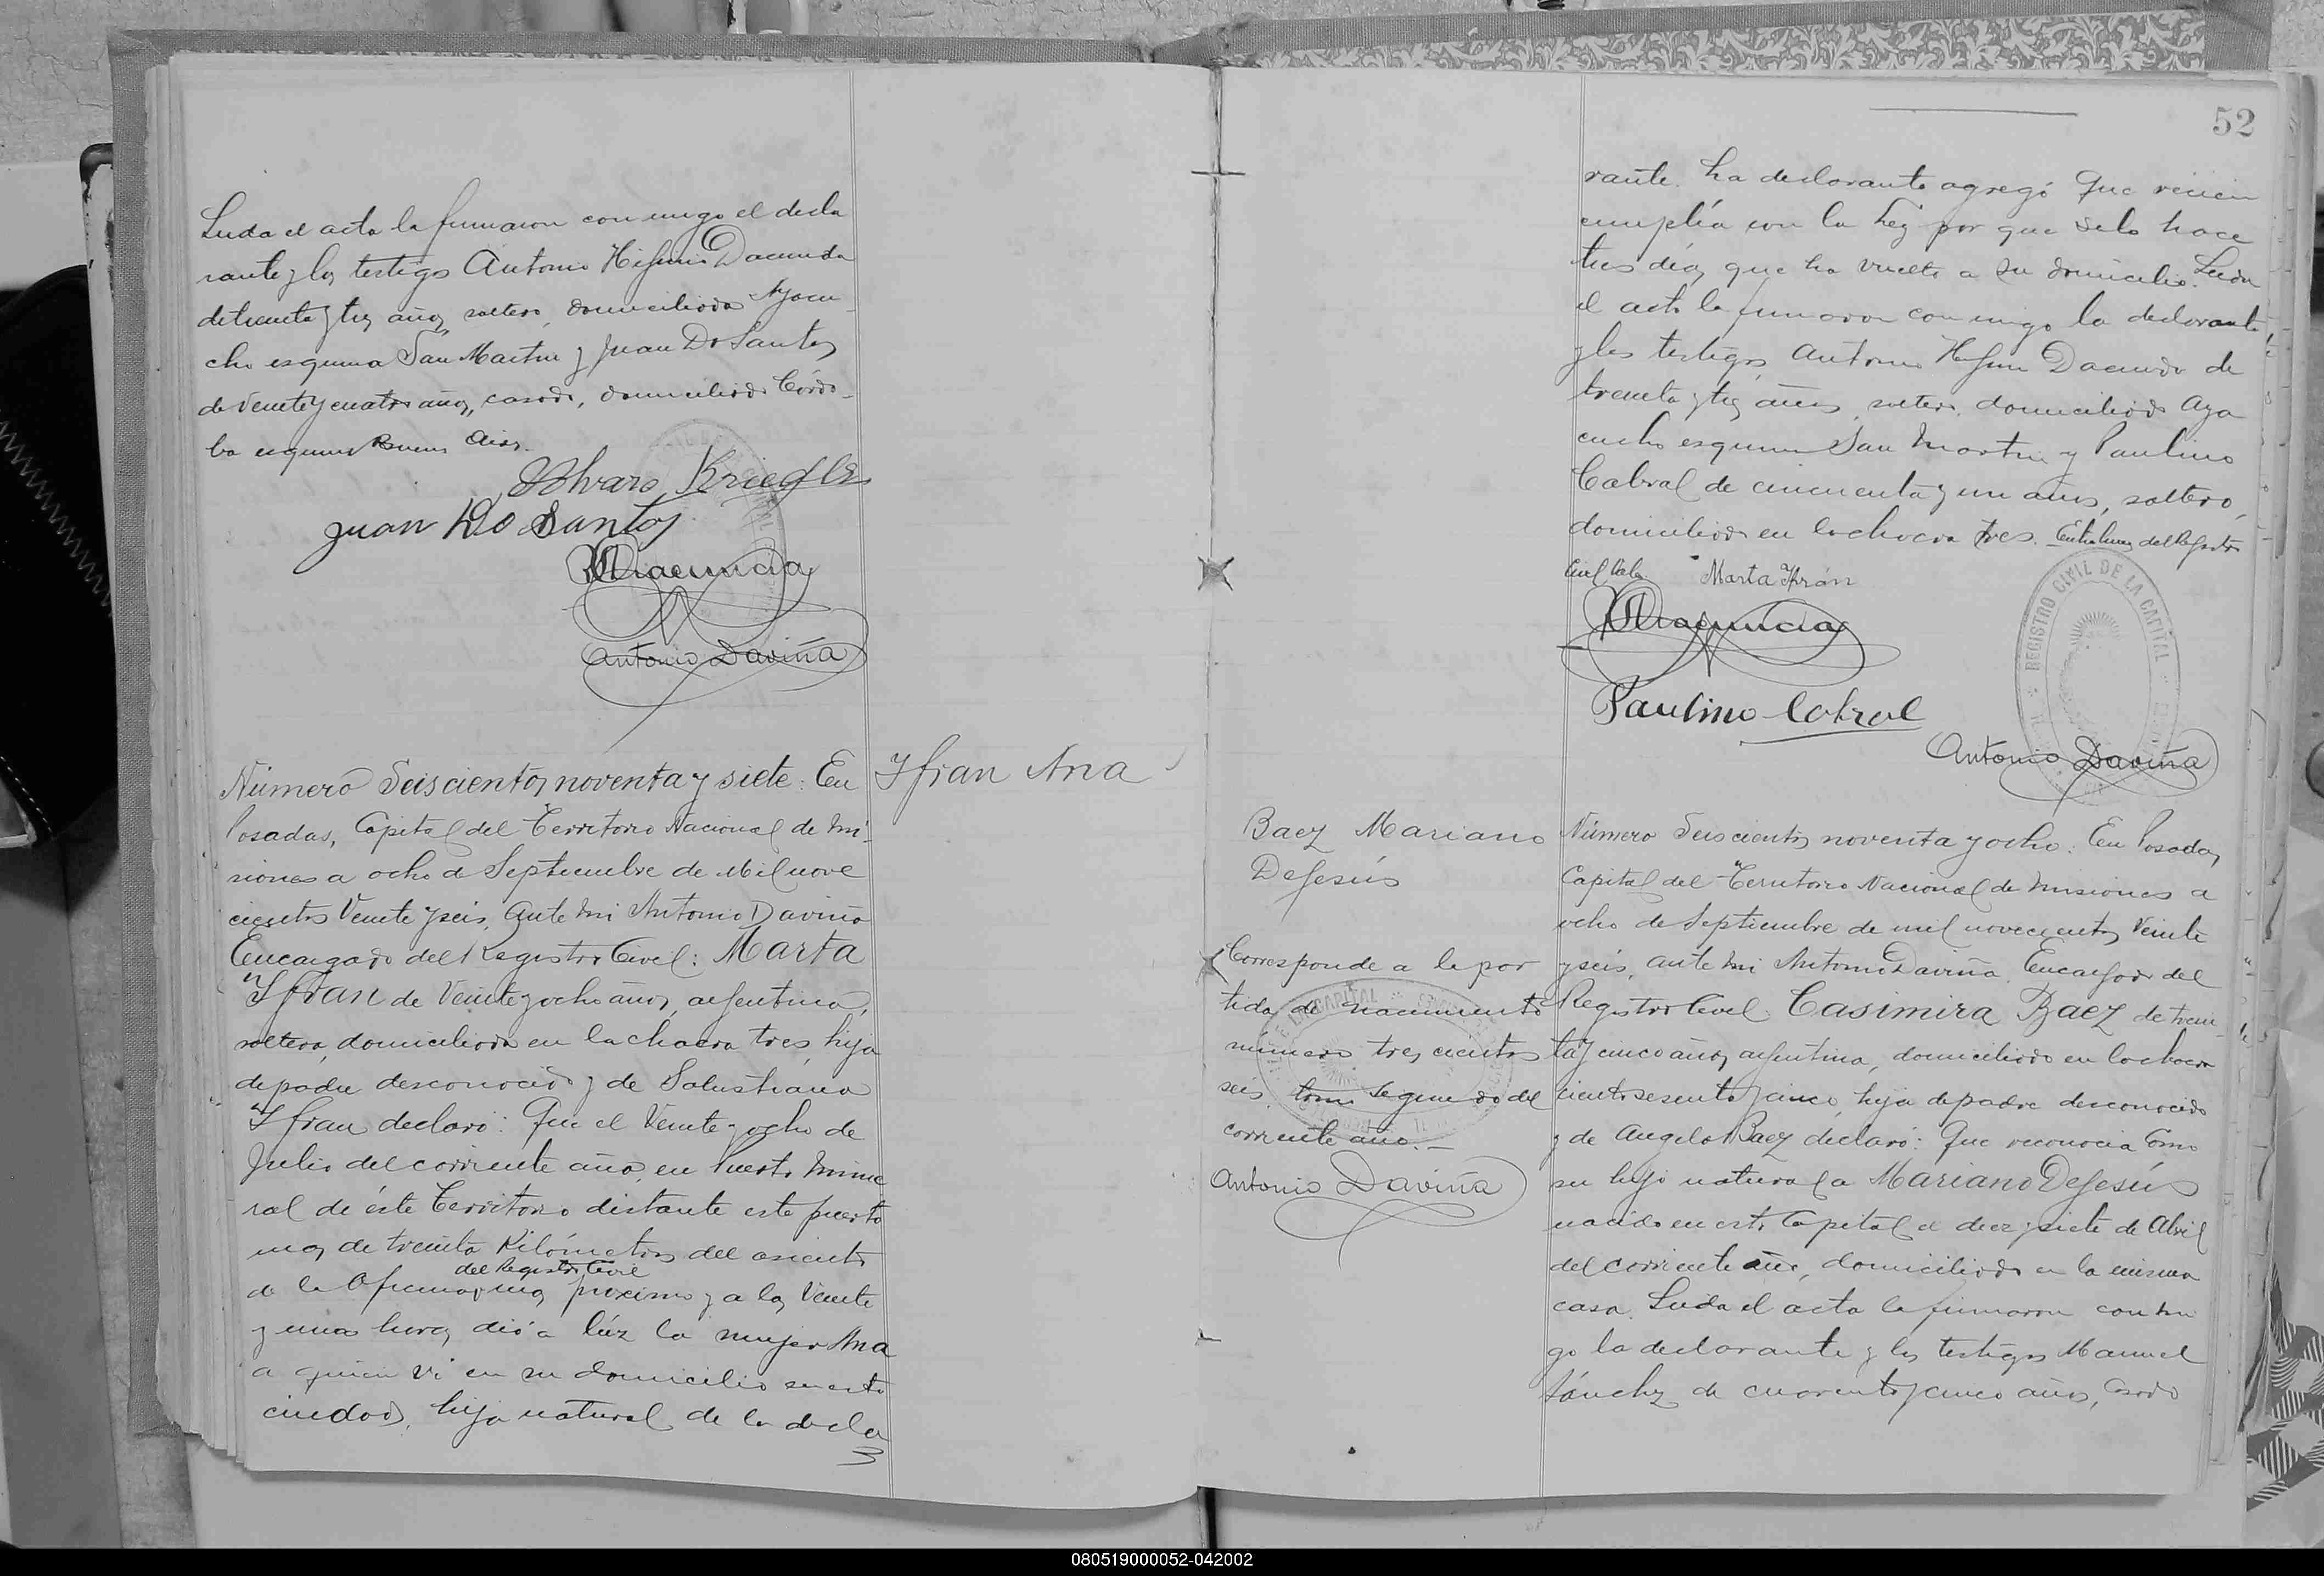 Leida el acta la firmaron conmigo el decla
rante y los testigos Antonio Higinio Dacunda
de treinta y tres años, soltero, domiciliado Ayacu
cho esquina San Martin y Juan Do Santos
de veinte y cuatro años, casado, domiciliado Córdo-
ba esquina Buenos Aires.
Alvaro Kriegler
Juan Do Santos
Antonio Daviña
Número Seiscientos noventa y siete: En
Posadas, Capital del Territorio Nacional de Mi-
siones a ocho de Septiembre de Mil nove
cientos Veinte y seis, ante mi Antonio Daviña
Encargado del Registro Civil: Marta
Ifran de Veinte y ocho años, argentina,
soltera, domiciliada en la chacra tres, hija
de padre desconocido y de Salustiana
Ifran declaró: Que el Veinte y ocho de
Julio del corriente año, en Puerto Mine
ral de éste Territorio distante este puerto
mas de treinta Kilómetros del asiento
del Registro Civil
de la Oficina mas proximo y a las Veinte
y una horas dió a lúz la mujer Ana
a quien vi en su domicilio en esta
ciudad, hija natural de la decla
Ifran Ana
52
rante. La declarante agregó que recien
cumplía con la Ley por que solo hace
tres días que ha vuelto a su domicilio. Leida
el acta la firmaron conmigo la declarante
y los testigos Antonio Higinio Dacunda de
treinta y tres años, soltero, domiciliado Aya
cucho esquina San Martin y Paulino
Cabral de cincuenta y un años, soltero,
domiciliado en la chacra tres. Entre lineas del Registro
Civil Vale
Marta Ifrán
Paulino Cabral
REGISTRO CIVIL DE LA CAPITAL
Antonio Daviña
Baez Mariano
DeJesús
Corresponde a la par
tida de nacimiento
numero tres cientos
seis, tomo segundo del
corriente año.-
Antonio Daviña
Número Seiscientos noventa y ocho: En Posadas,
Capital del Territorio Nacional de Misiones a
ocho de Septiembre de mil novecientos Veinte
y seis, ante mi Antonio Daviña, Encargado del
Registro Civil: Casimira Baez de trein
ta y cinco años, argentina, domiciliada en la chacra
ciento sesenta y cinco, hija de padre desconocido
y de Angela Baez declaró: Que reconocia como
su hijo natural a Mariano DeJesús
nacido en esta Capital el diez y siete de Abril
del corriente año, domiciliado en la misma
casa. Leida el acta la firmaron conmi
go la declarante y los testigos Manuel
Sánchez de cuarenta y cinco años, casado
080519000052-042002